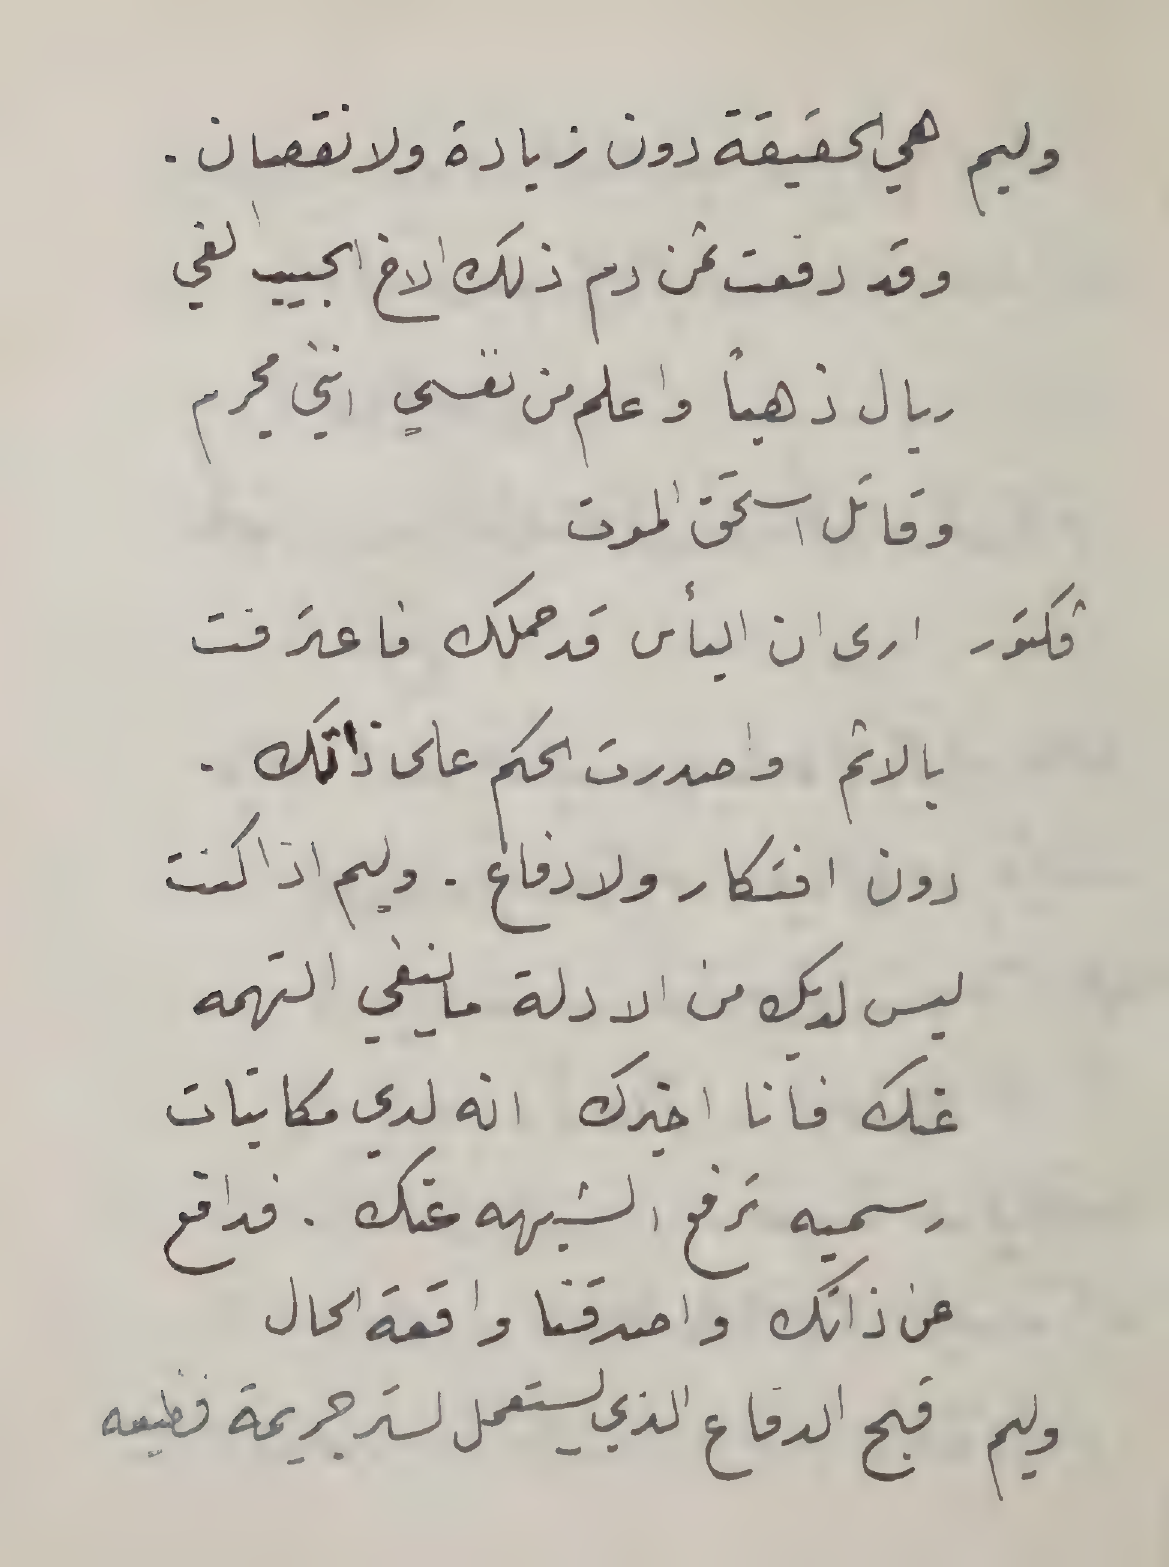 وليم هي الحقيقة دون زيادة ولا نقصان .
وقد دفعت ثمن دم ذلك الاخ الحبيب الفي
ريال ذهباً واعلم من نفسي انني مجرم
وقاتل استحق الموت
ڤكتور ارى ان اليأس قد حملك فاعترفت
بالاثم واصدرت الحكم على ذاتك .
دون افتكار ولا دفاع . وليم اذا كنت
ليس لديك من الادلة ما ينفي التهمه
عنك فانا اخبرك انه لدي مكاتبات
رسميه ترفع الشبهه عنك . فدافع
عن ذاتك واصدقنا واقعة الحال
وليم قبح الدفاع الذي يستعمل لستر جريمة فظيعه